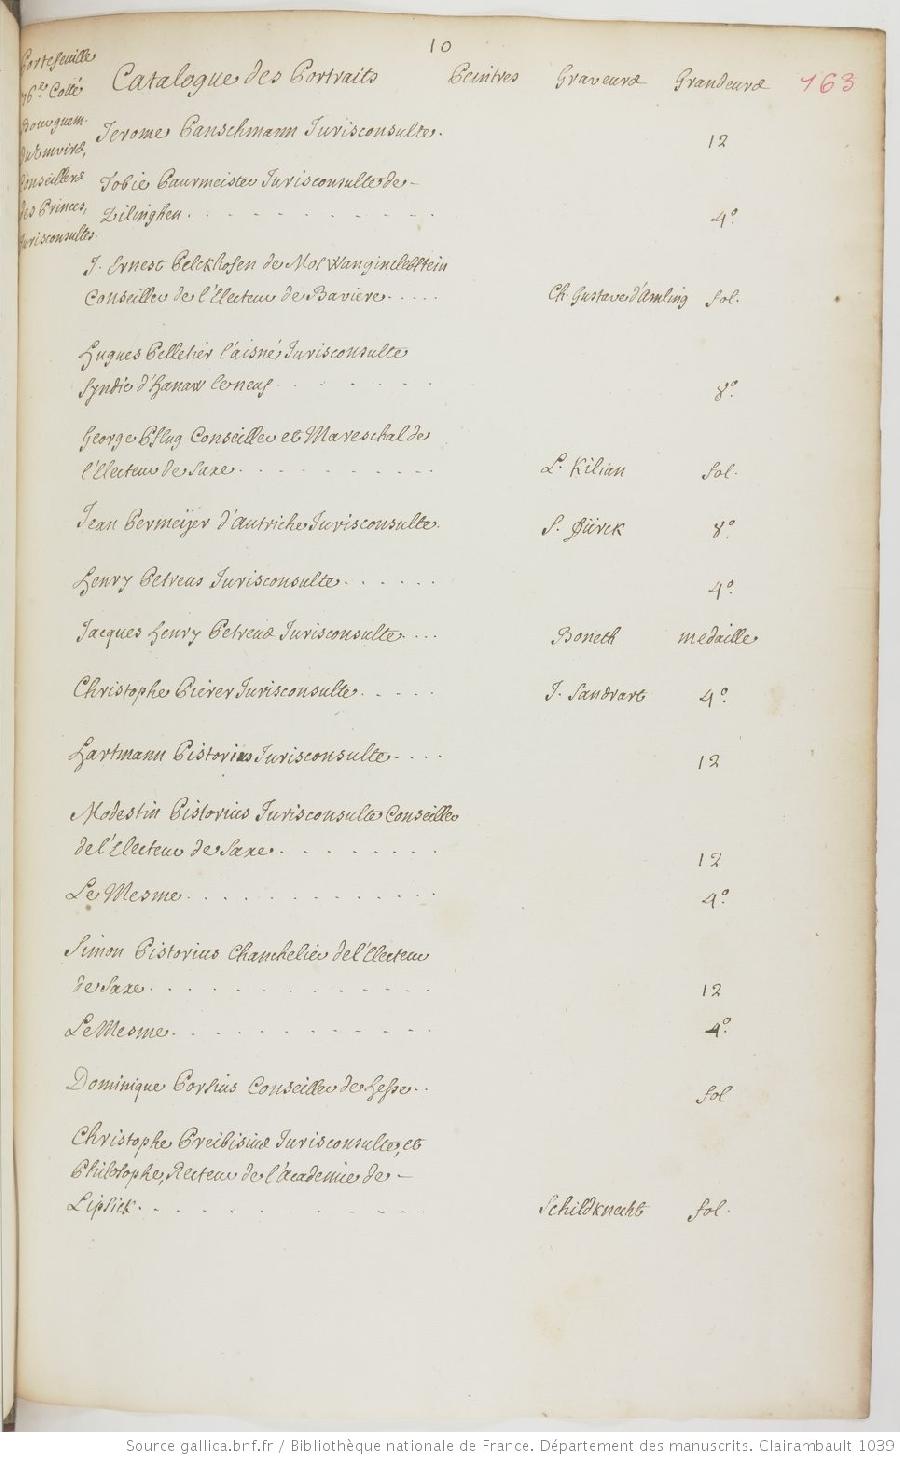 10
Portefeuille
76e Collé
Bourguem.
Duumvirs,
Conseillers
des Princes,
Jurisconsultes
Catalogue des Portraits Peintres Graveurs Grandeurs 163
Jerome Panschmann Jurisconsulte. 12
Tobie Paurmeister Jurisconsulte de -
Zilinghen. 4o
J. Ernest Pelckhofen de Mos Wanginelebstein
Conseiller de l'Electeur de Baviere. Ch. Gustave d'Amling fol.
Hugues Pelletier l'aisné Jurisconsulte
Syndic d'Hanaw le neuf 8o
George Pflug Conseiller et Mareschal de
l'Electeur de Saxe. L. Kilian fol.
Jean Permeijer d'Autriche Jurisconsulte. S. Dürck 8o
Henry Petreus Jurisconsulte. 4o
Jacques Henry Petreus Jurisconsulte. Boneth medaille
Christophe Pierer Jurisconsulte. J. Sandrart 4o
Hartmann Pistorius Jurisconsulte 12
Modestin Pistorius Jurisconsulte Conseiller
de l'Electeur de Saxe. 12
Le Mesme. 4o
Simon Pistorius Chanchelier de l'Electeur
de Saxe. 12
Le Mesme. 4o
Dominique Porsius Conseiller de Hesse. fol
Christophe Preibisius Jurisconsulte, et
Philosophe, Recteur de l'Academie de -
Lipsick. Schildknecht fol.
Source gallica.bnf.fr / Bibliothèque nationale de France. Département des manuscrits. Clairambault 1039